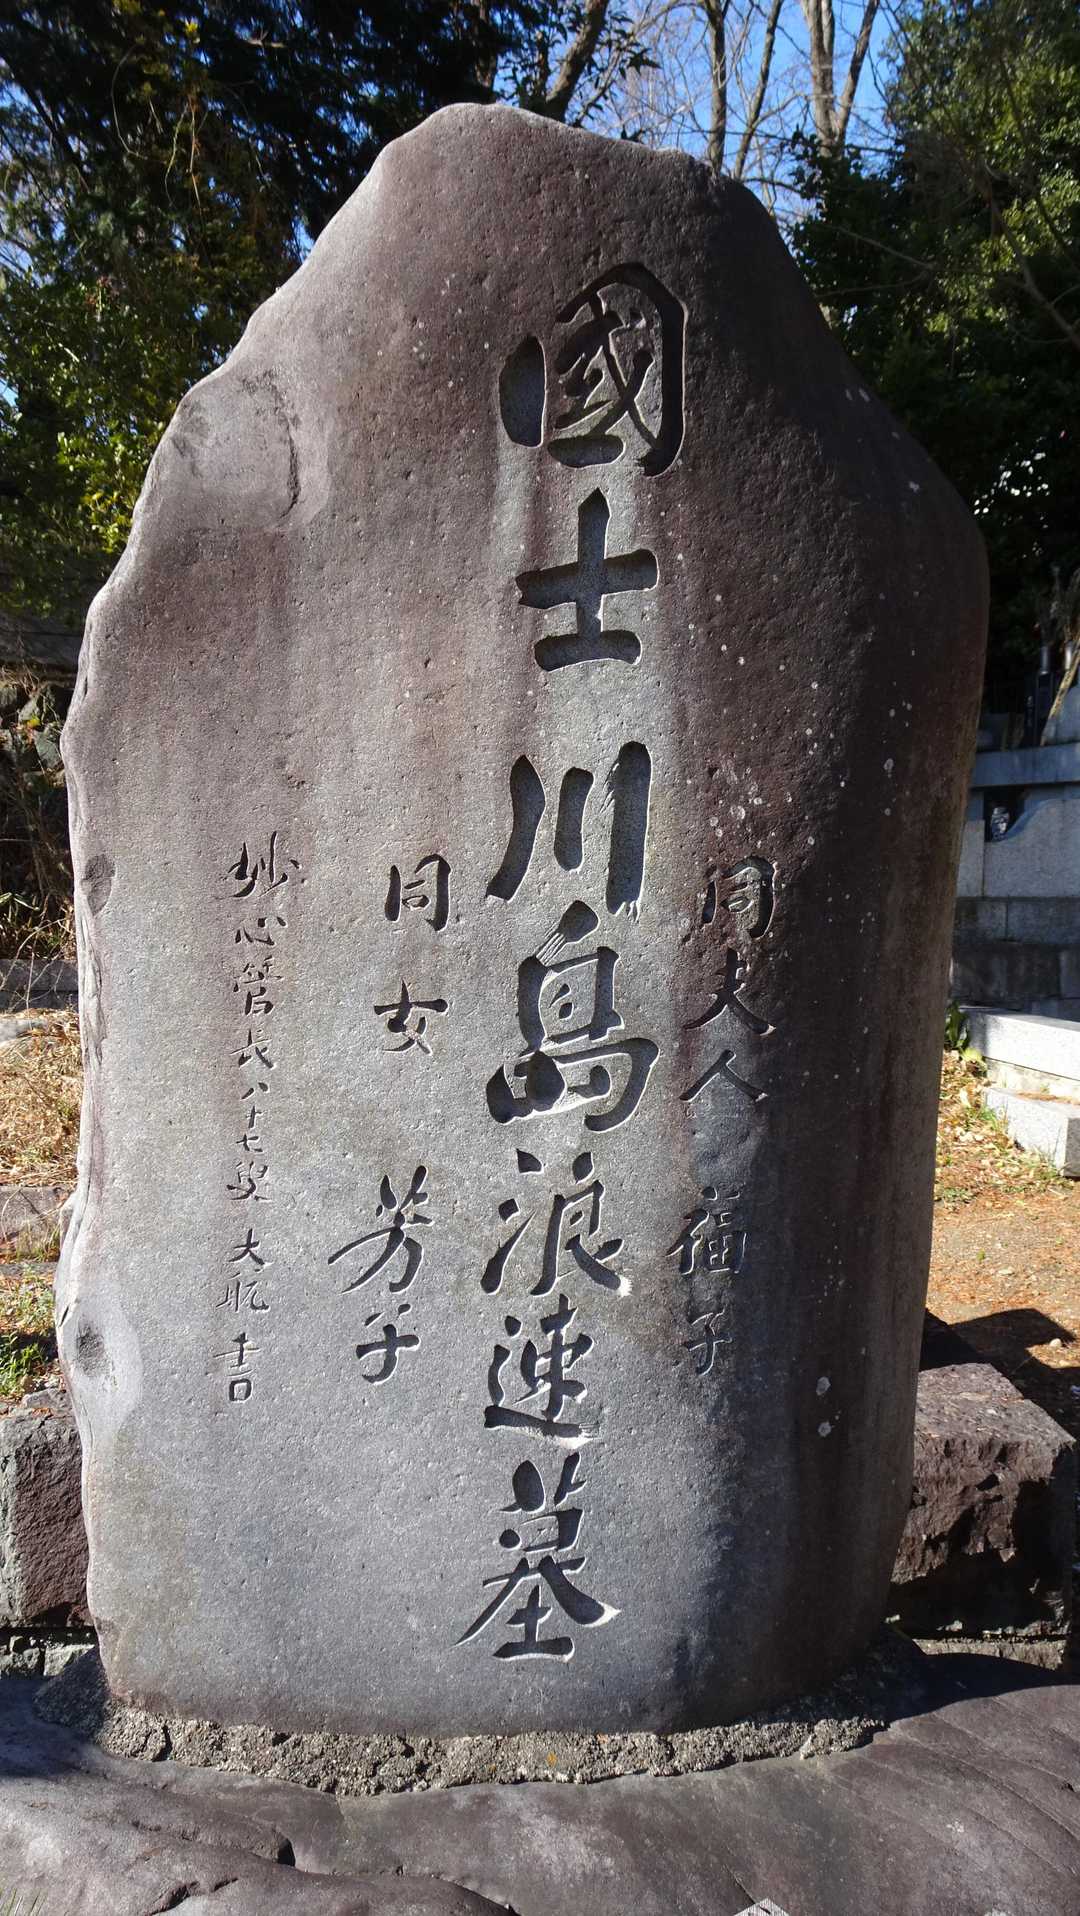 同夫人 福子
國士川島浪速墓
同女 芳子
妙心管長八十七叟 大航書